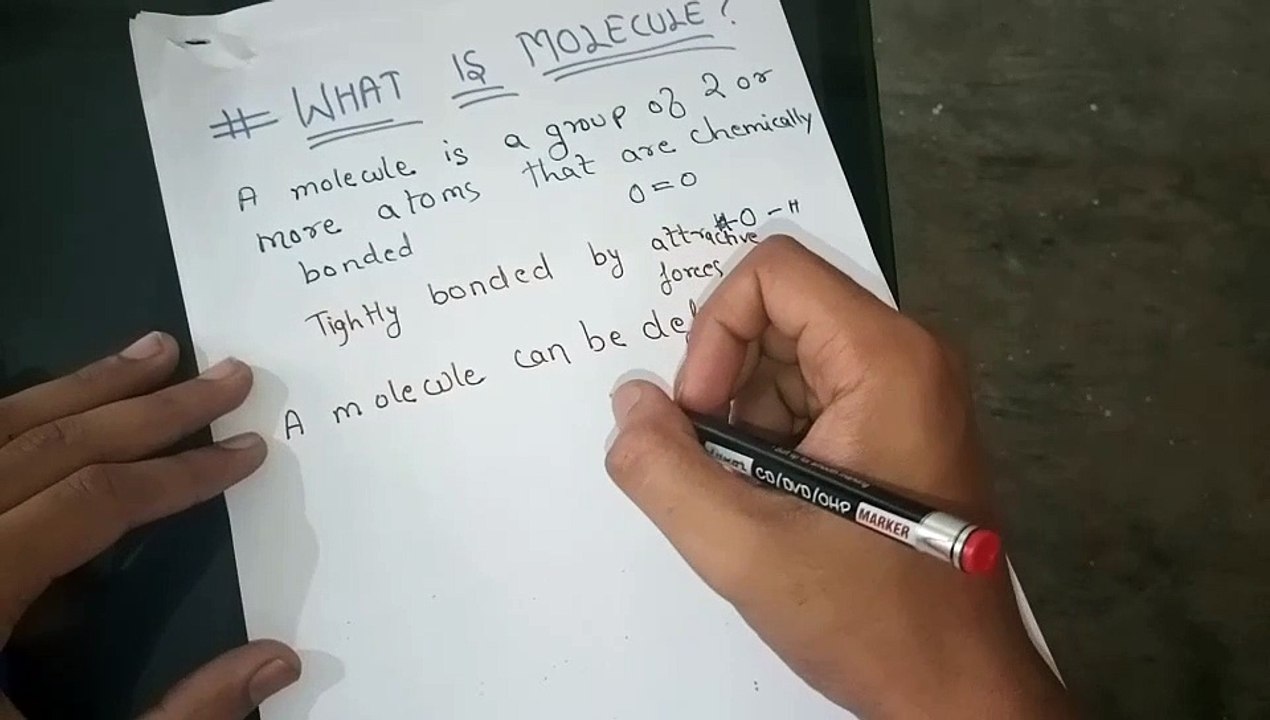 # WHAT IS MOLECULE?
A molecule is a group of 2 or
more atoms that are chemically
bonded
O=O
H-O-H
Tightly bonded by attractive
forces
A molecule can be def
CD/DVD/OHP MARKER